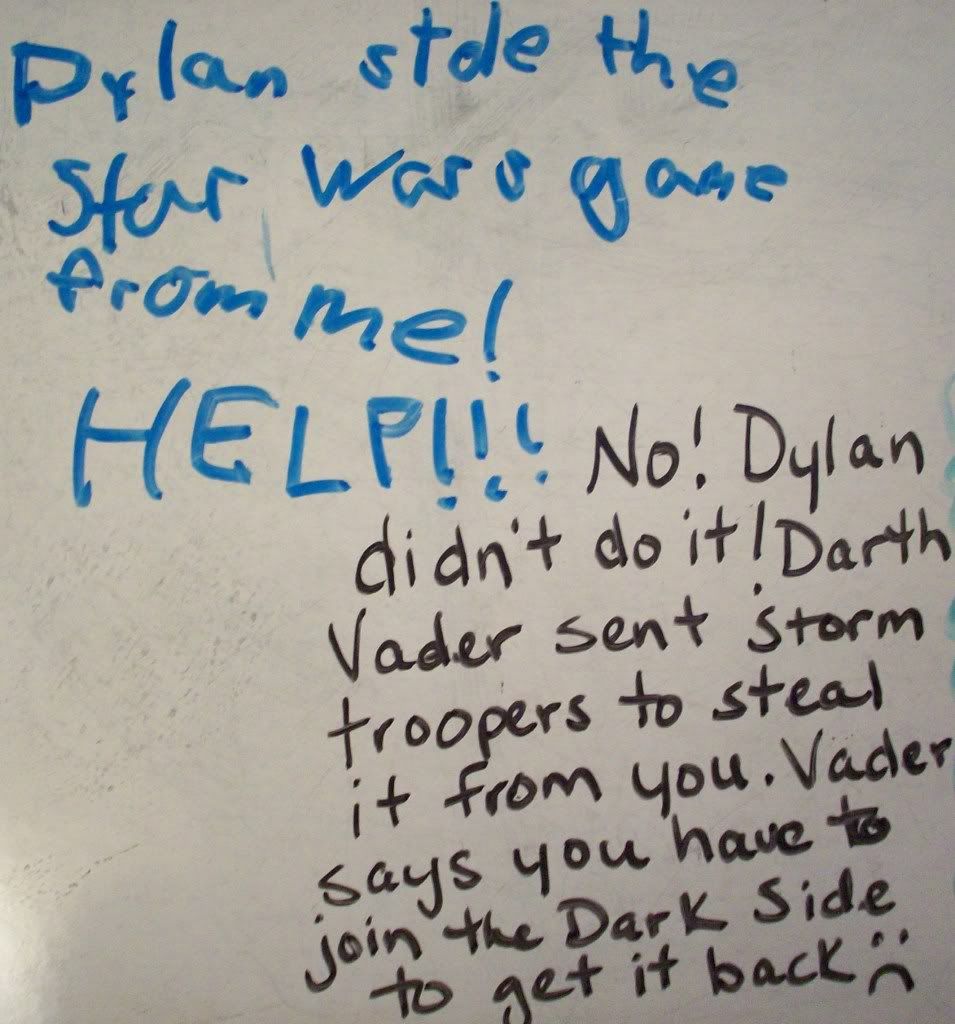 Dylan stole the
Star Wars game
from me!
HELP!!! No! Dylan
didn't do it! Darth
Vader sent storm
troopers to steal
it from you. Vader
says you have to
join the Dark Side
to get it back :(